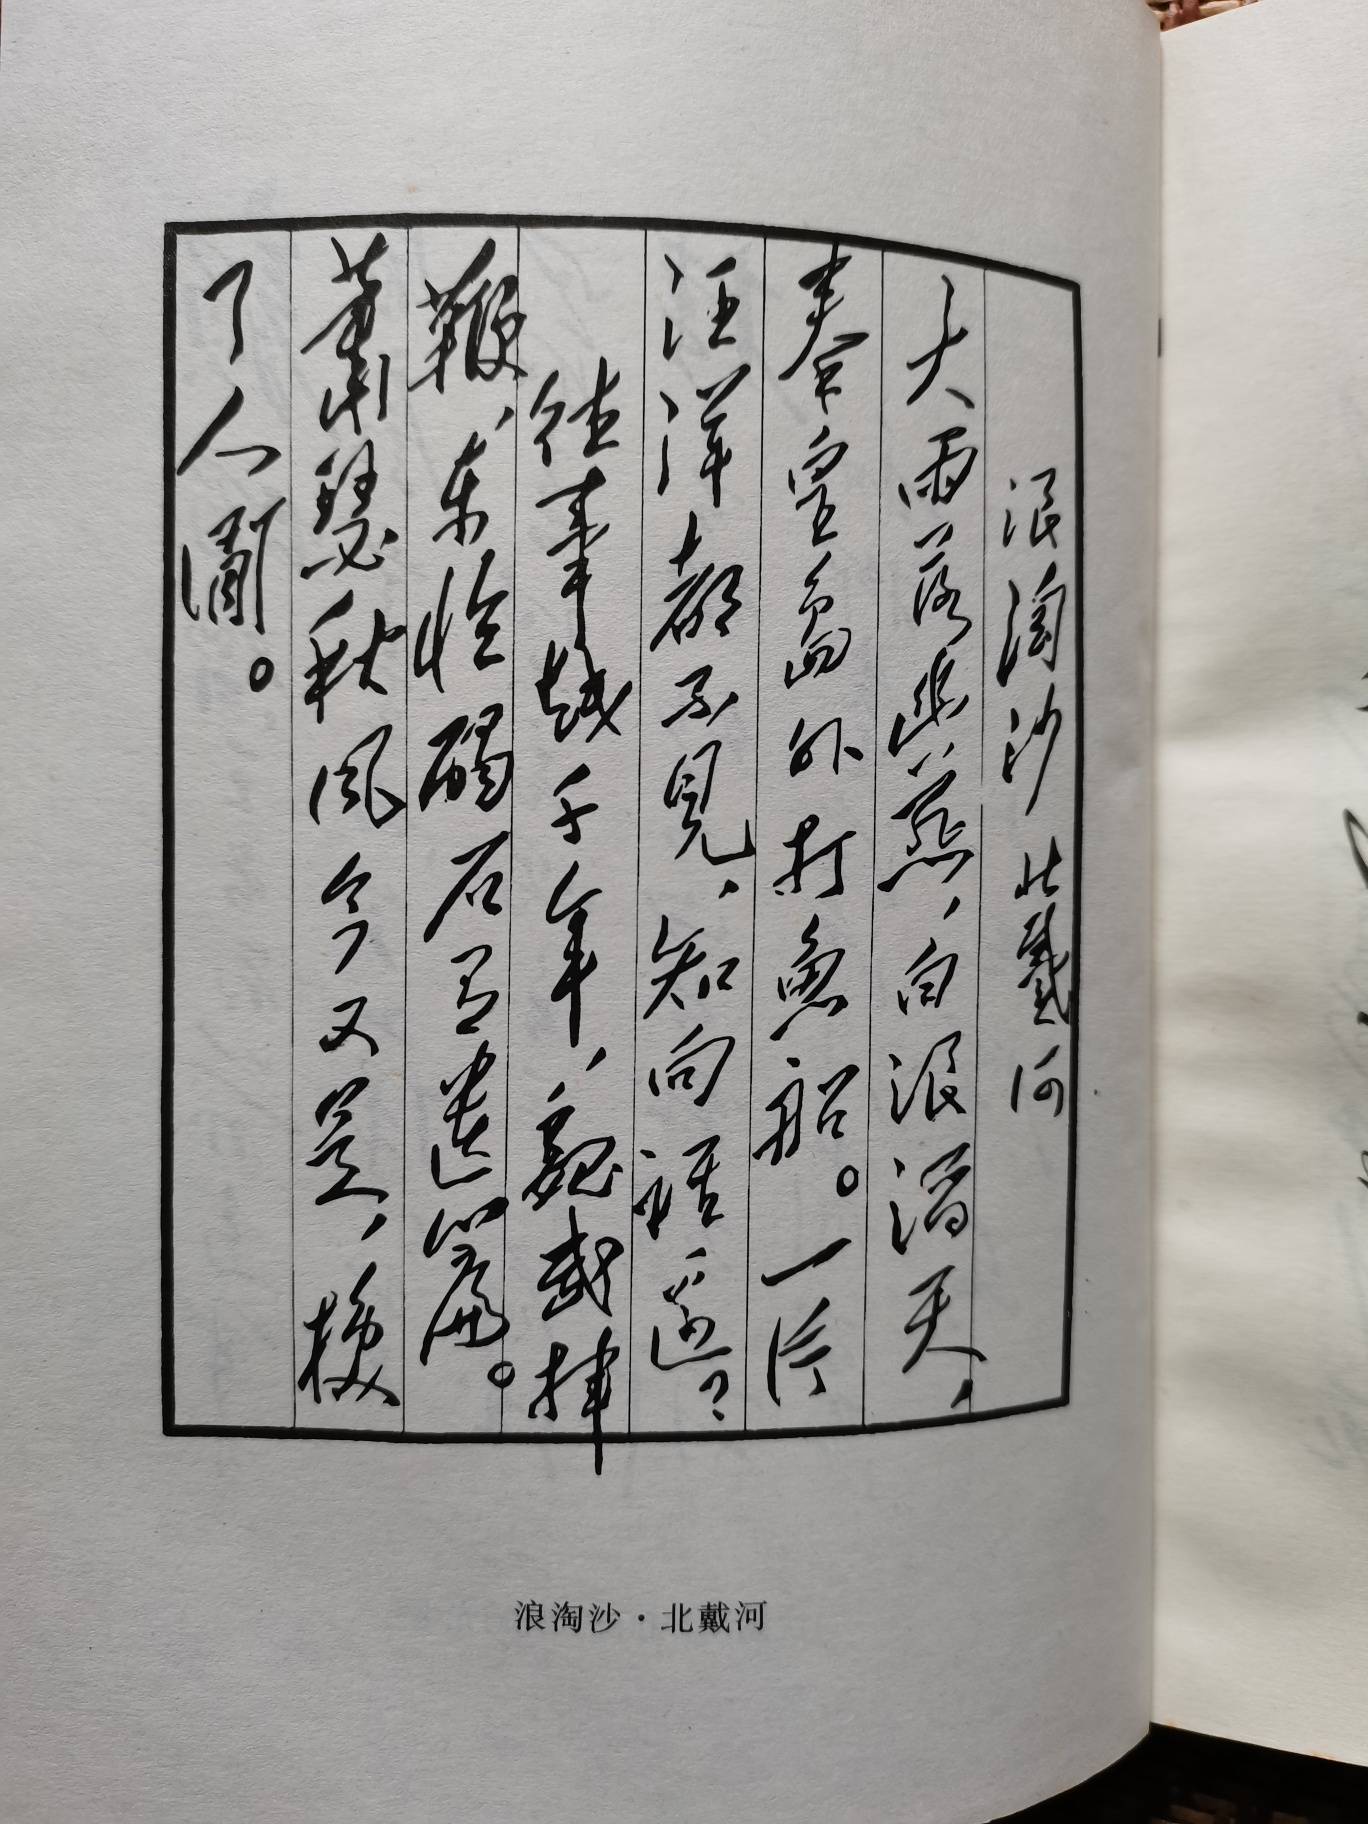 浪淘沙 北戴河
大雨落幽燕,白浪滔天,
秦皇島外打魚船。一片
汪洋都不見,知向誰邊?
往事越千年,魏武揮
鞭,東臨碣石有遺篇。
蕭瑟秋風今又是,換
了人間。
浪淘沙·北戴河